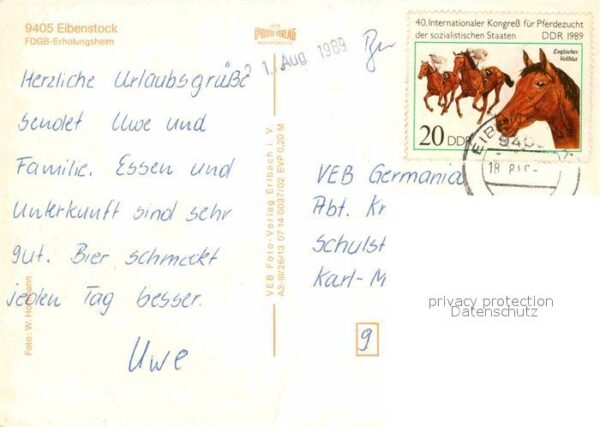 9405 Eibenstock
FDGB-Erholungsheim
Herzliche Urlaubsgrüße
sendet Uwe und
Familie. Essen und
Unterkunft sind sehr
gut. Bier schmeckt
jeden Tag besser.
Uwe
Foto: W. Hoffmann
VEB Foto-Verlag Erlbach i. V.
A3-III/26/13 07 14 0037/02 EVP 0,20 M
FOTO VERLAG
21. Aug. 1989
40. Internationaler Kongreß für Pferdezucht
der sozialistischen Staaten DDR 1989
Englisches
Vollblut
20 DDR
EIB
940
18
VEB Germania
Abt. Kr
Schulst
Karl-M
privacy protection
Datenschutz
9